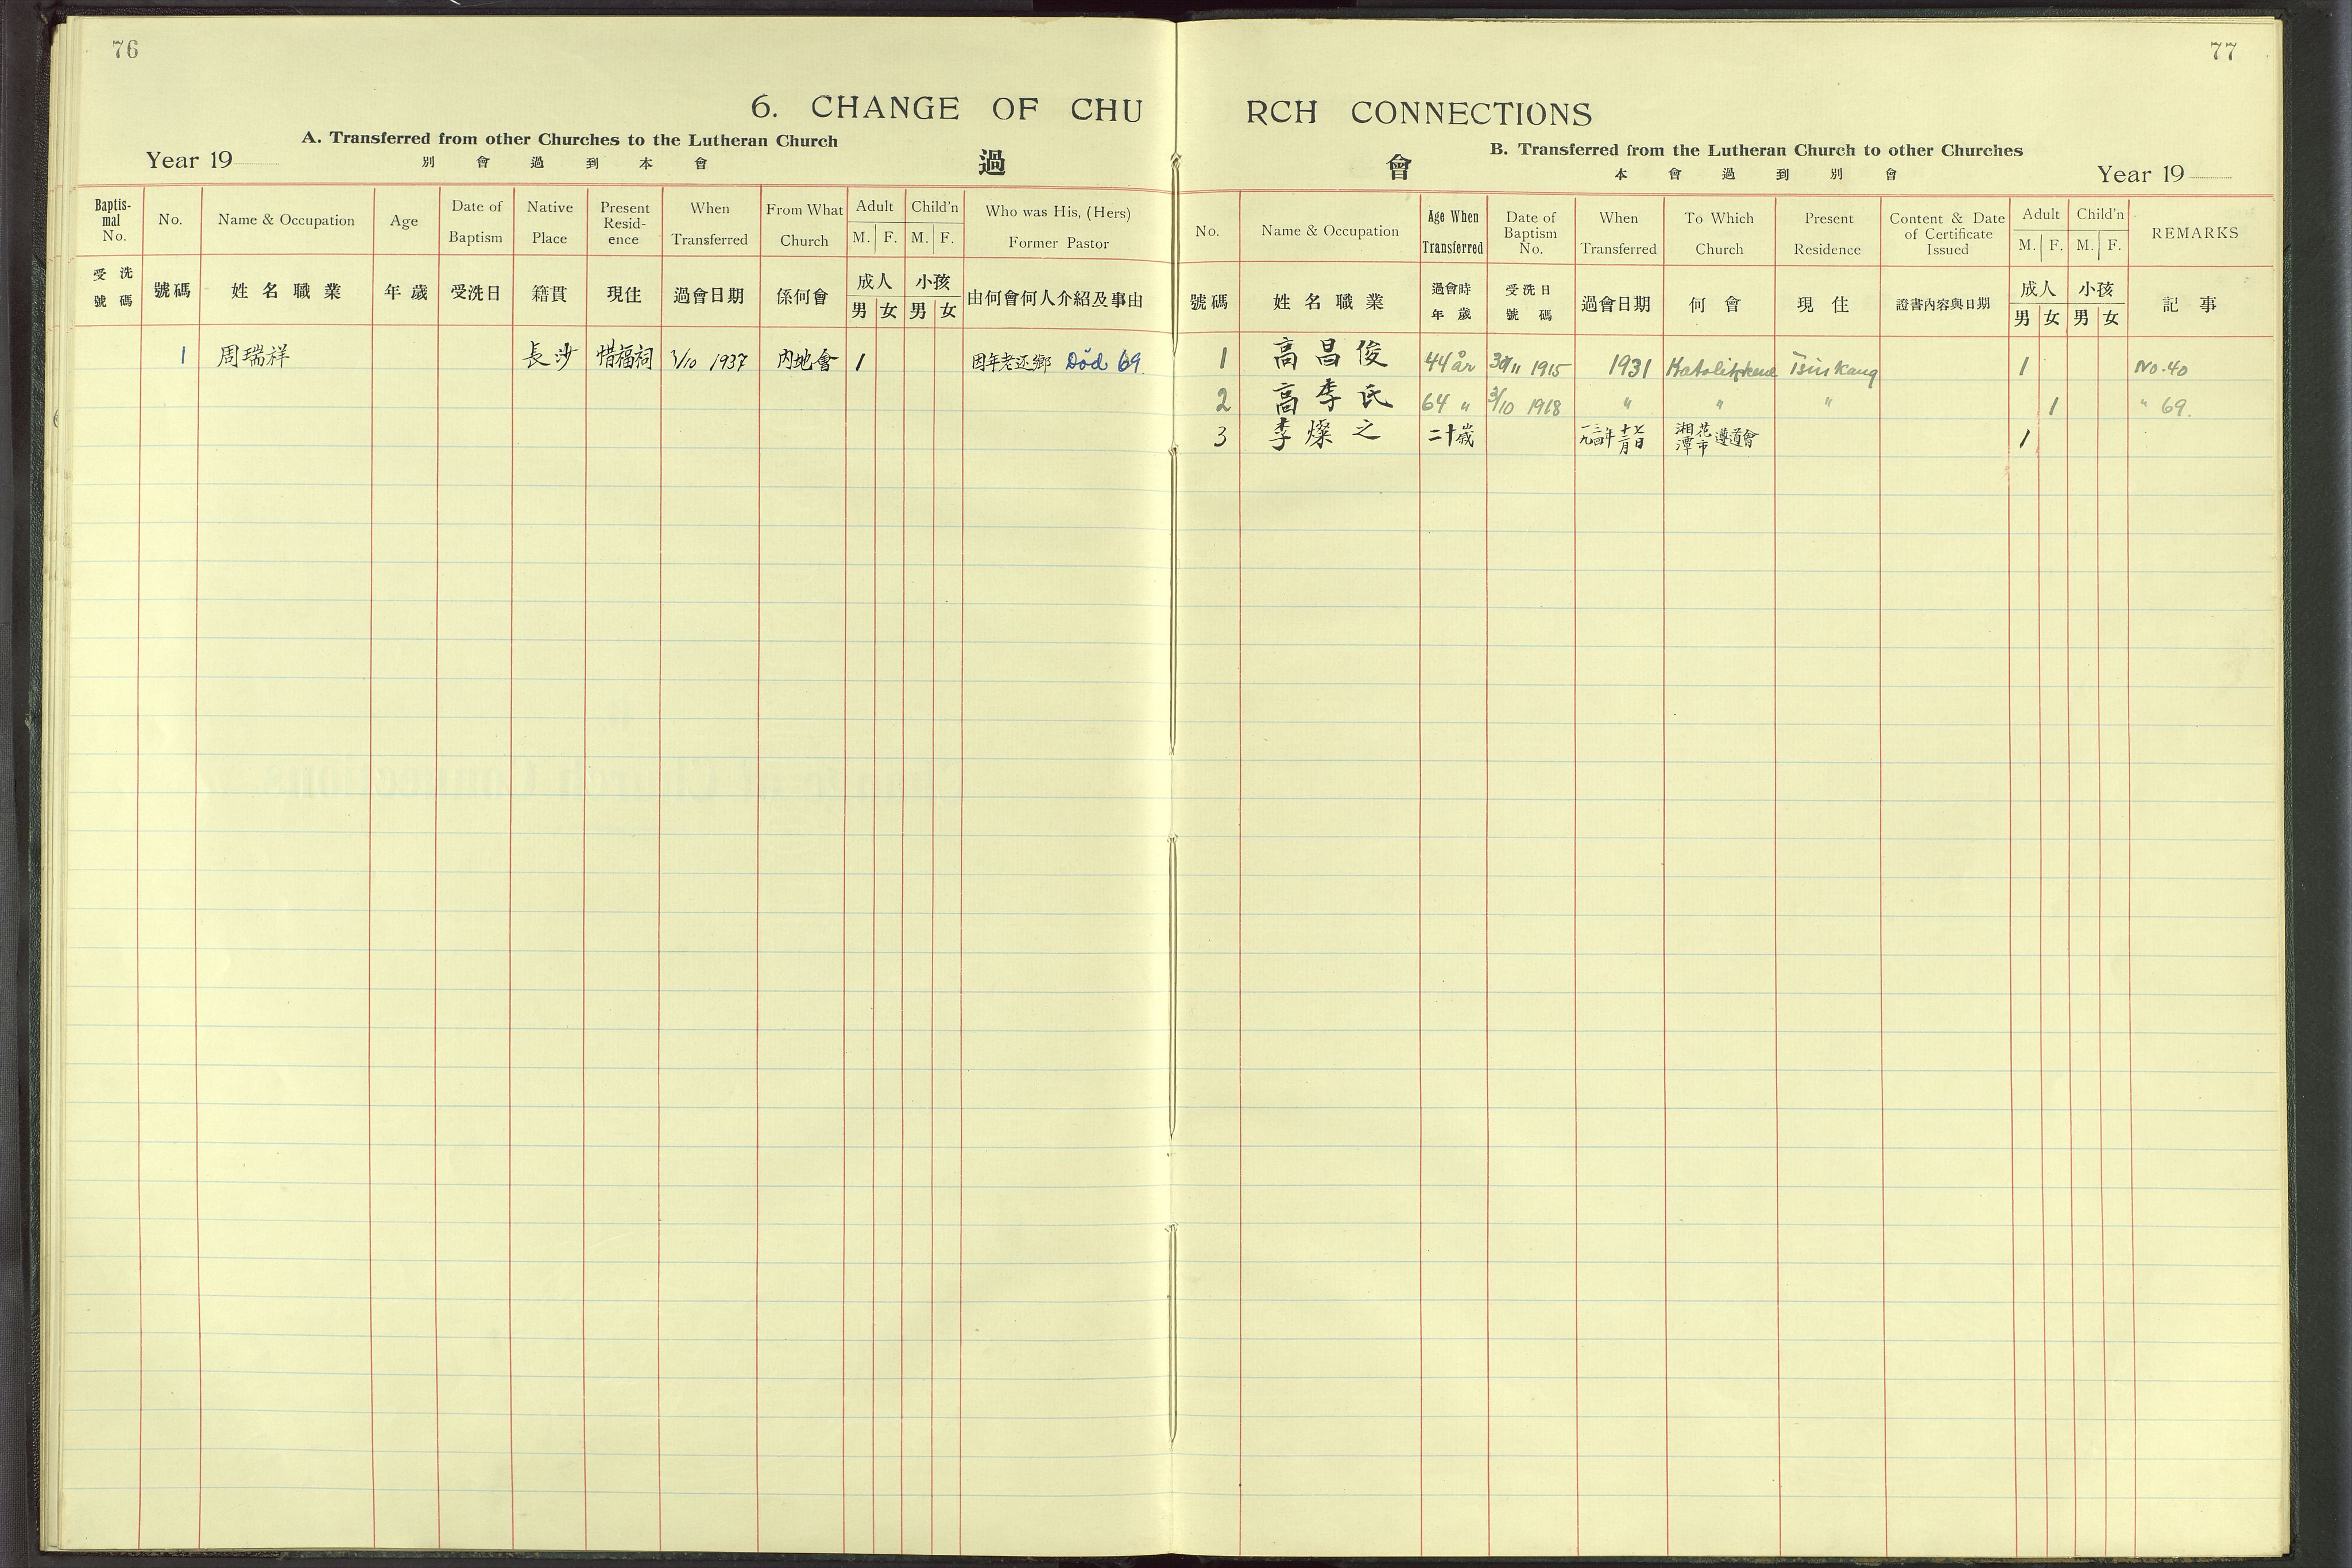 76
6. CHANGE OF CHU
A. Transferred from other Churches to the Lutheran Church
Year 19
別 會 過 到 本 會
過
Baptis-mal No. No. Name & Occupation Age Date of Baptism Native Place Present Resid-ence When Transferred From What Church Adult M. F. Child'n M. F. Who was His, (Hers) Former Pastor
受洗號碼 號碼 姓名職業 年歲 受洗日 籍貫 現住 過會日期 係何會 成人 男 女 小孩 男 女 由何會何人介紹及事由
1 周瑞祥 長沙 惜福祠 1/10 1937 內地會 1 因年老还鄉 Död 69.
77
RCH CONNECTIONS
B. Transferred from the Lutheran Church to other Churches
會
本 會 過 到 別 會
Year 19
No. Name & Occupation Age When Transferred Date of Baptism No. When Transferred To Which Church Present Residence Content & Date of Certificate Issued Adult M. F. Child'n M. F. REMARKS
號碼 姓名職業 過會時年歲 受洗日號碼 過會日期 何會 現住 證書內容與日期 成人 男 女 小孩 男 女 記事
1 高昌俊 44 år 30/11 1915 1931 Tsin kang 1 No. 40
2 高李氏 64 " 3/10 1918 " " " 1 " 69.
3 李燦之 二十歲 湘潭花市遵道會 1